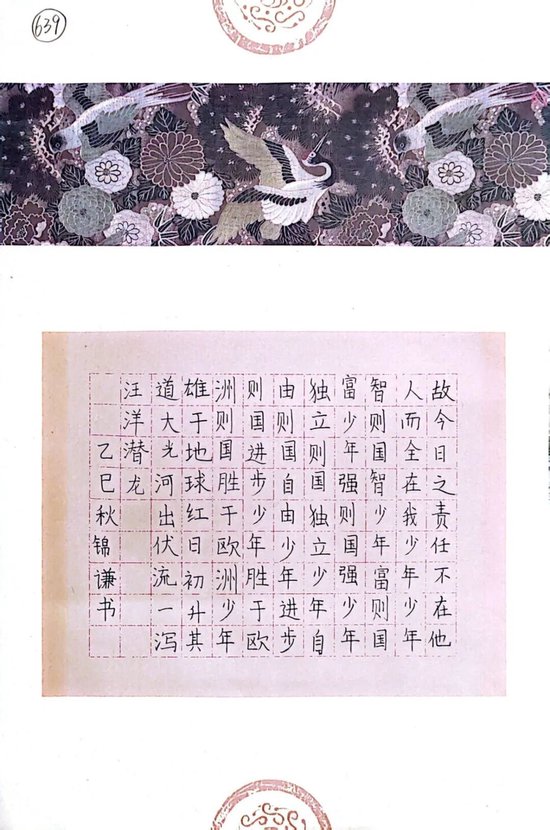 639
故今日之责任不在他
人而全在我少年少年
智则国智少年富则国
富少年强则国强少年
独立则国独立少年自
由则国自由少年进步
则国进步少年胜于欧
洲则国胜于欧洲少年
雄于地球红日初升其
道大光河出伏流一泻
汪洋潜龙
乙巳秋锦谦书